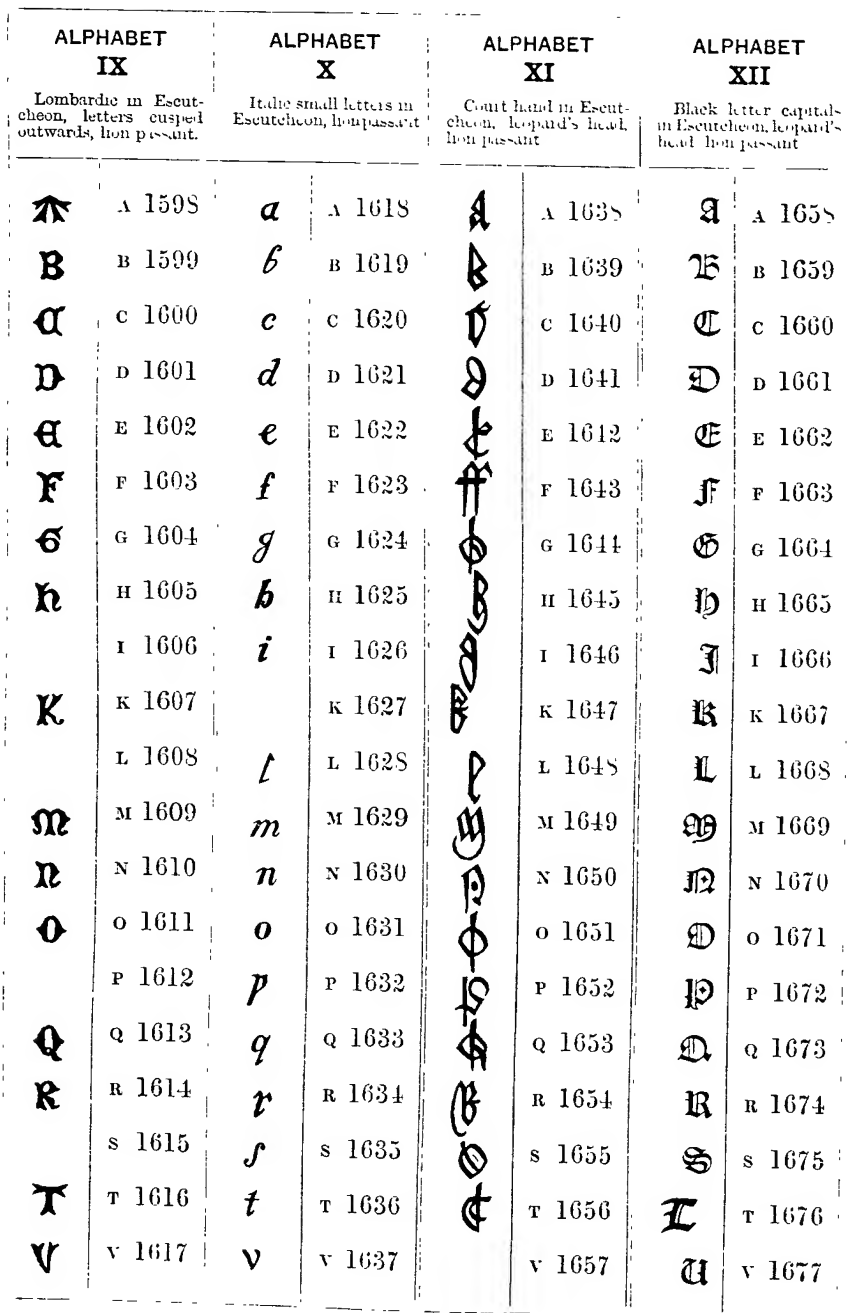 ALPHABET
IX
Lombardic in Escut-
cheon, letters cusped
outwards, lion passant.
A A 1598
B B 1599
C C 1600
D D 1601
E E 1602
F F 1603
G G 1604
h H 1605
I 1606
K K 1607
L 1608
M M 1609
n N 1610
O O 1611
P 1612
Q Q 1613
R R 1614
S 1615
T T 1616
V V 1617
ALPHABET
X
Italic small letters in
Escutcheon, lion passant
a A 1618
b B 1619
c C 1620
d D 1621
e E 1622
f F 1623
g G 1624
h H 1625
i I 1626
K 1627
l L 1628
m M 1629
n N 1630
o O 1631
p P 1632
q Q 1633
r R 1634
ſ S 1635
t T 1636
v V 1637
ALPHABET
XI
Court hand in Escut-
cheon, leopard's head,
lion passant
A 1638
B 1639
C 1640
D 1641
E 1642
F 1643
G 1644
H 1645
I 1646
K 1647
L 1648
M 1649
N 1650
O 1651
P 1652
Q 1653
R 1654
S 1655
T 1656
V 1657
ALPHABET
XII
Black letter capitals
in Escutcheon, leopard's
head lion passant
A A 1658
B B 1659
C C 1660
D D 1661
E E 1662
F F 1663
G G 1664
H H 1665
I I 1666
K K 1667
L L 1668
M M 1669
N N 1670
O O 1671
P P 1672
Q Q 1673
R R 1674
S S 1675
T T 1676
U V 1677